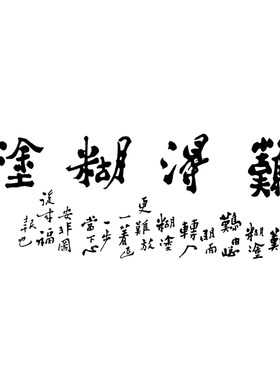 難得糊塗
糊塗
難由聰
明而
轉入
糊塗
更難放
一著退
一步
當下心
安非圖
後來福
報也